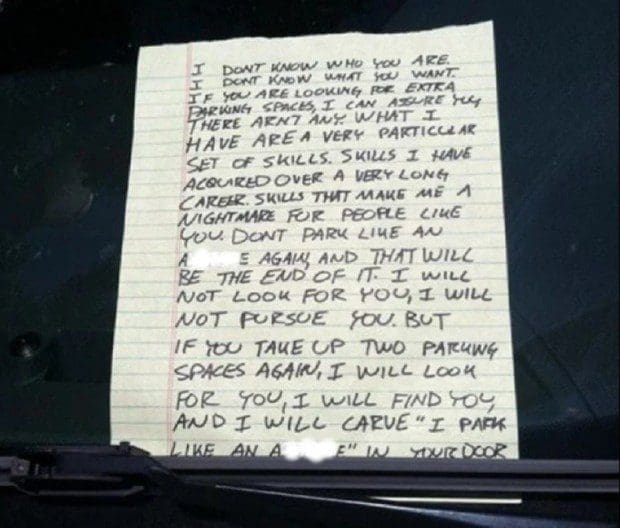 I DONT KNOW WHO YOU ARE.
I DONT KNOW WHAT YOU WANT.
IF YOU ARE LOOKING FOR EXTRA
PARKING SPACES, I CAN ASSURE YOU,
THERE ARNT ANY. WHAT I
HAVE ARE A VERY PARTICULAR
SET OF SKILLS. SKILLS I HAVE
ACQUIRED OVER A VERY LONG
CAREER. SKILLS THAT MAKE ME A
NIGHTMARE FOR PEOPLE LIKE
YOU. DONT PARK LIKE AN
A E AGAIN, AND THAT WILL
BE THE END OF IT. I WILL
NOT LOOK FOR YOU, I WILL
NOT PURSUE YOU. BUT
IF YOU TAKE UP TWO PARKING
SPACES AGAIN, I WILL LOOK
FOR YOU, I WILL FIND YOU,
AND I WILL CARVE "I PARK
LIKE AN A E" IN YOUR DOOR